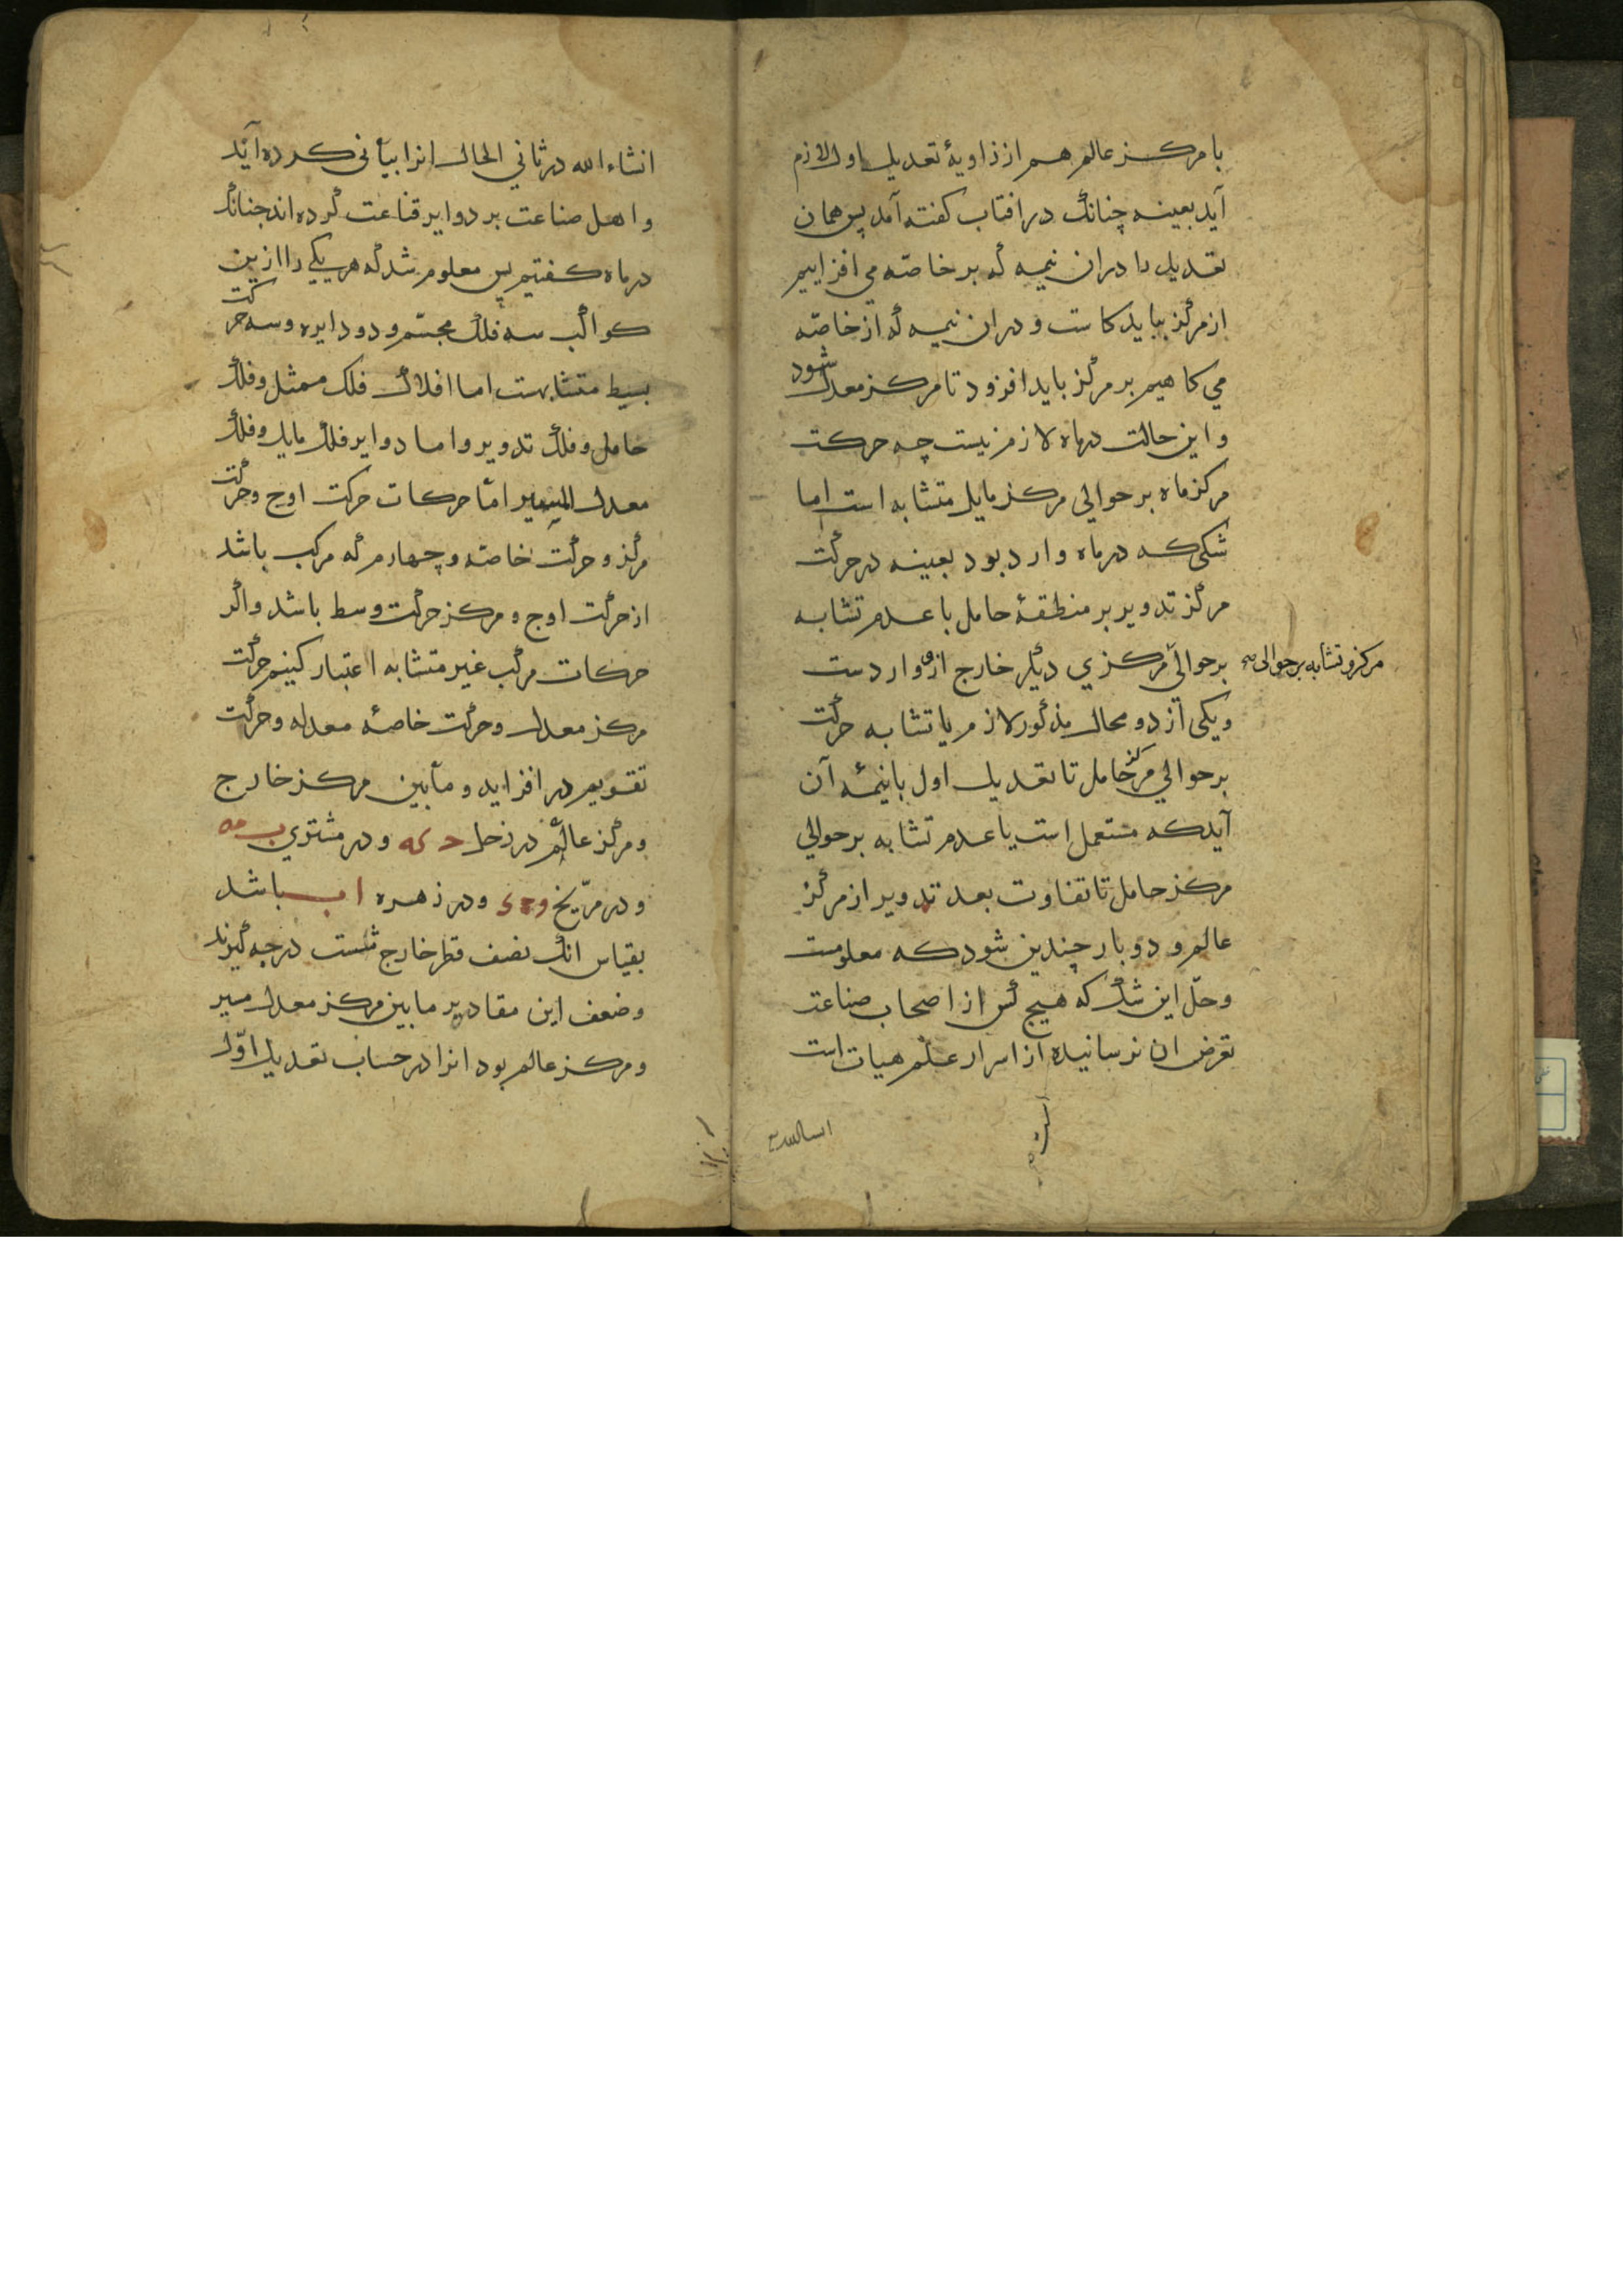 با مرکز عالم هم از زاویهٔ تعدیل اول لازم
آید بعینه چنانک در افتاب کفته آمد پس همان
تعدیل را دران نیمه که بر خاصّه می افزاییم
از مرکز بباید کاست و دران نیمه که از خاصّه
می کاهیم بر مرکز باید افزود تا مرکز معدل شود
و این حالت در ماه لازم نیست چه حرکت
مرکز ماه بر حوالی مرکز مایل متشابه است اما
شکی که در ماه وارد بود بعینه در حرکت
مرکز تدویر بر منطقهٔ حامل با عدم تشابه
بر حوالی مرکزی دیکر خارج ازو واردست
مرکز و تشابه بر حوالی صح
و یکی از دو محال مذکور لازم یا تشابه حرکت
بر حوالی مرکز حامل تا تعدیل اول با نیمهٔ آن
آید که مستعمل است یا عدم تشابه بر حوالی
مرکز حامل تا تفاوت بعد تدویر از مرکز
عالم دو بار چندین شود که معلومست
و حلّ این شک که هیچ کس از اصحاب صناعت
تعرض ان نرسانیده از اسرار علم هیات است
است
انشاءالله در ثانی الحال انرا بیانی کرده آید
و اهل صناعت بر دوایر قناعت کرده اند جنانک
در ماه کفتیم پس معلوم شد که هر یکی را ازین
کواکب سه فلک مجسّم و دو دایره و سه حرکت
بسیط متشابهست اما افلاک فلک ممثل و فلک
حامل و فلک تدویر و اما دوایر فلک مایل و فلک
معدل المسیر امّا حرکات حرکت اوج و حرکت
مرکز و حرکت خاصّه و چهارم که مرکب باشد
از حرکت اوج و مرکز حرکت وسط باشد و اکر
حرکات مرکب غیر متشابه اعتبار کنیم حرکت
مرکز معدل و حرکت خاصهٔ معدله و حرکت
تقویم در افزاید و مابین مرکز خارج
و مرکز عالم در زحل ح که و در مشتری ب مه
و در مرّیخ و در زهره ا ب باشد
بقیاس انک نصف قطر خارج شست درجه کیرند
و ضعف این مقادیر ما بین مرکز معدل مسیر
و مرکز عالم بود انرا در حساب تعدیل اوّل